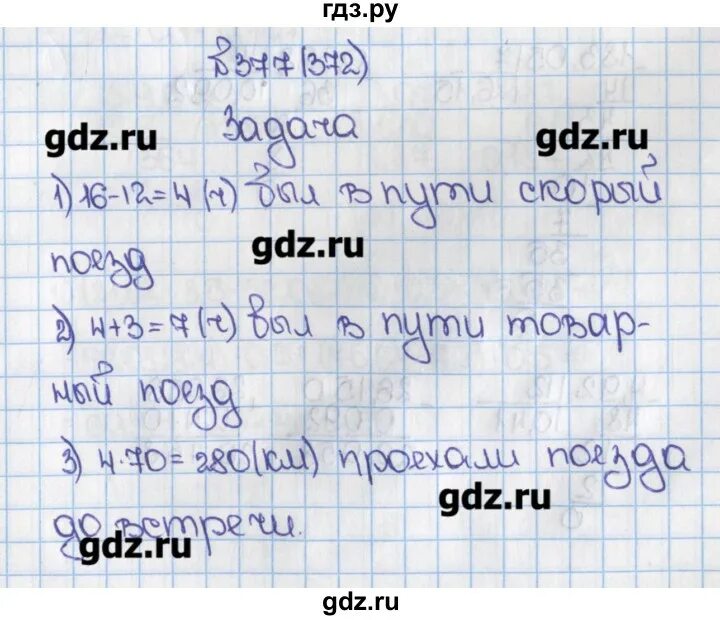 гдз.ру
№377(372)
Задача
gdz.ru gdz.ru
1) 16-12=4 (ч) был в пути скорый
gdz.ru
поезд
2) 4+3=7(ч) был в пути товар-
ный поезд
3) 4·70=280(км) проехали поезда
gdz.ru
до встречи.
gdz.ru
gdz.ru